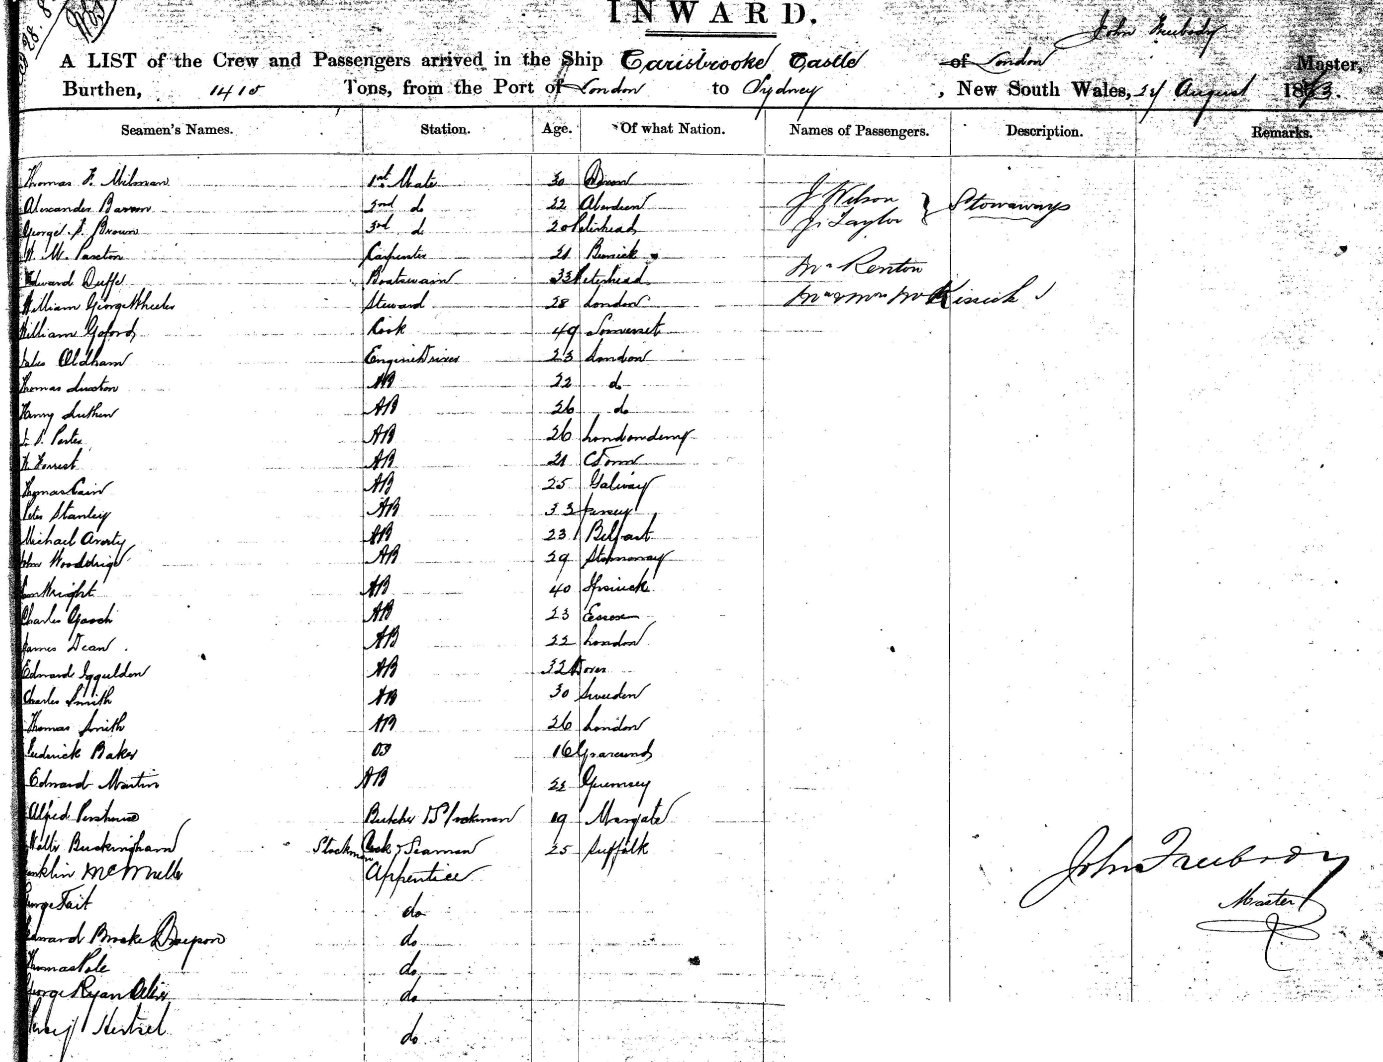 INWARD.
John Freebody
A LIST of the Crew and Passengers arrived in the Ship Carisbrooke Castle of London Master,
Burthen, 1415 Tons, from the Port of London to Sydney, New South Wales, August 18
Seamen's Names. Station. Age. Of what Nation. Names of Passengers. Description. Remarks.
Thomas F. Milman 1st Mate 30 Devon
Alexander Barron 2nd do 22 Aberdeen J Wilson } Stowaways
George S. Brown 3rd do 20 Peterhead J. Taylor
W. Paxton Carpenter 21 Berwick Mr Renton
Edward Duffe Boatswain 33 Peterhead
William George Wheeler Steward 28 London Mr & Mrs McKissick
William Goford Cook 49 Somerset
Oldham Engine Driver 23 London
Thomas Luxton AB 22 do
Henry Luthen AB 26 do
Porter AB 26 Londonderry
Forrest AB 21 CTown
Thomas Cain AB 25 Galway
Peter Stanley AB 33 Jersey
Michael AB 23 Belfast
John Wooldrige AB 29 Stornoway
Wright AB 40 Ipswick
Charles Gooch AB 23 Essex
James Dean AB 22 London
Edward Iggulden AB 32 Dover
Charles Smith AB 30 Sweden
Thomas Smith AB 26 London
Frederick Baker OS 16 Gravesend
Edward Martin AB 22 Guernsey
Alfred Butcher & Stockman 19 Margate
Walter Buckingham Stockman Cook & Seaman 25 Suffolk
Franklin McMillle Apprentice John Freebody
George Tait do Master
Edward Brooke do
Thomas Pole do
George Ryan do
do